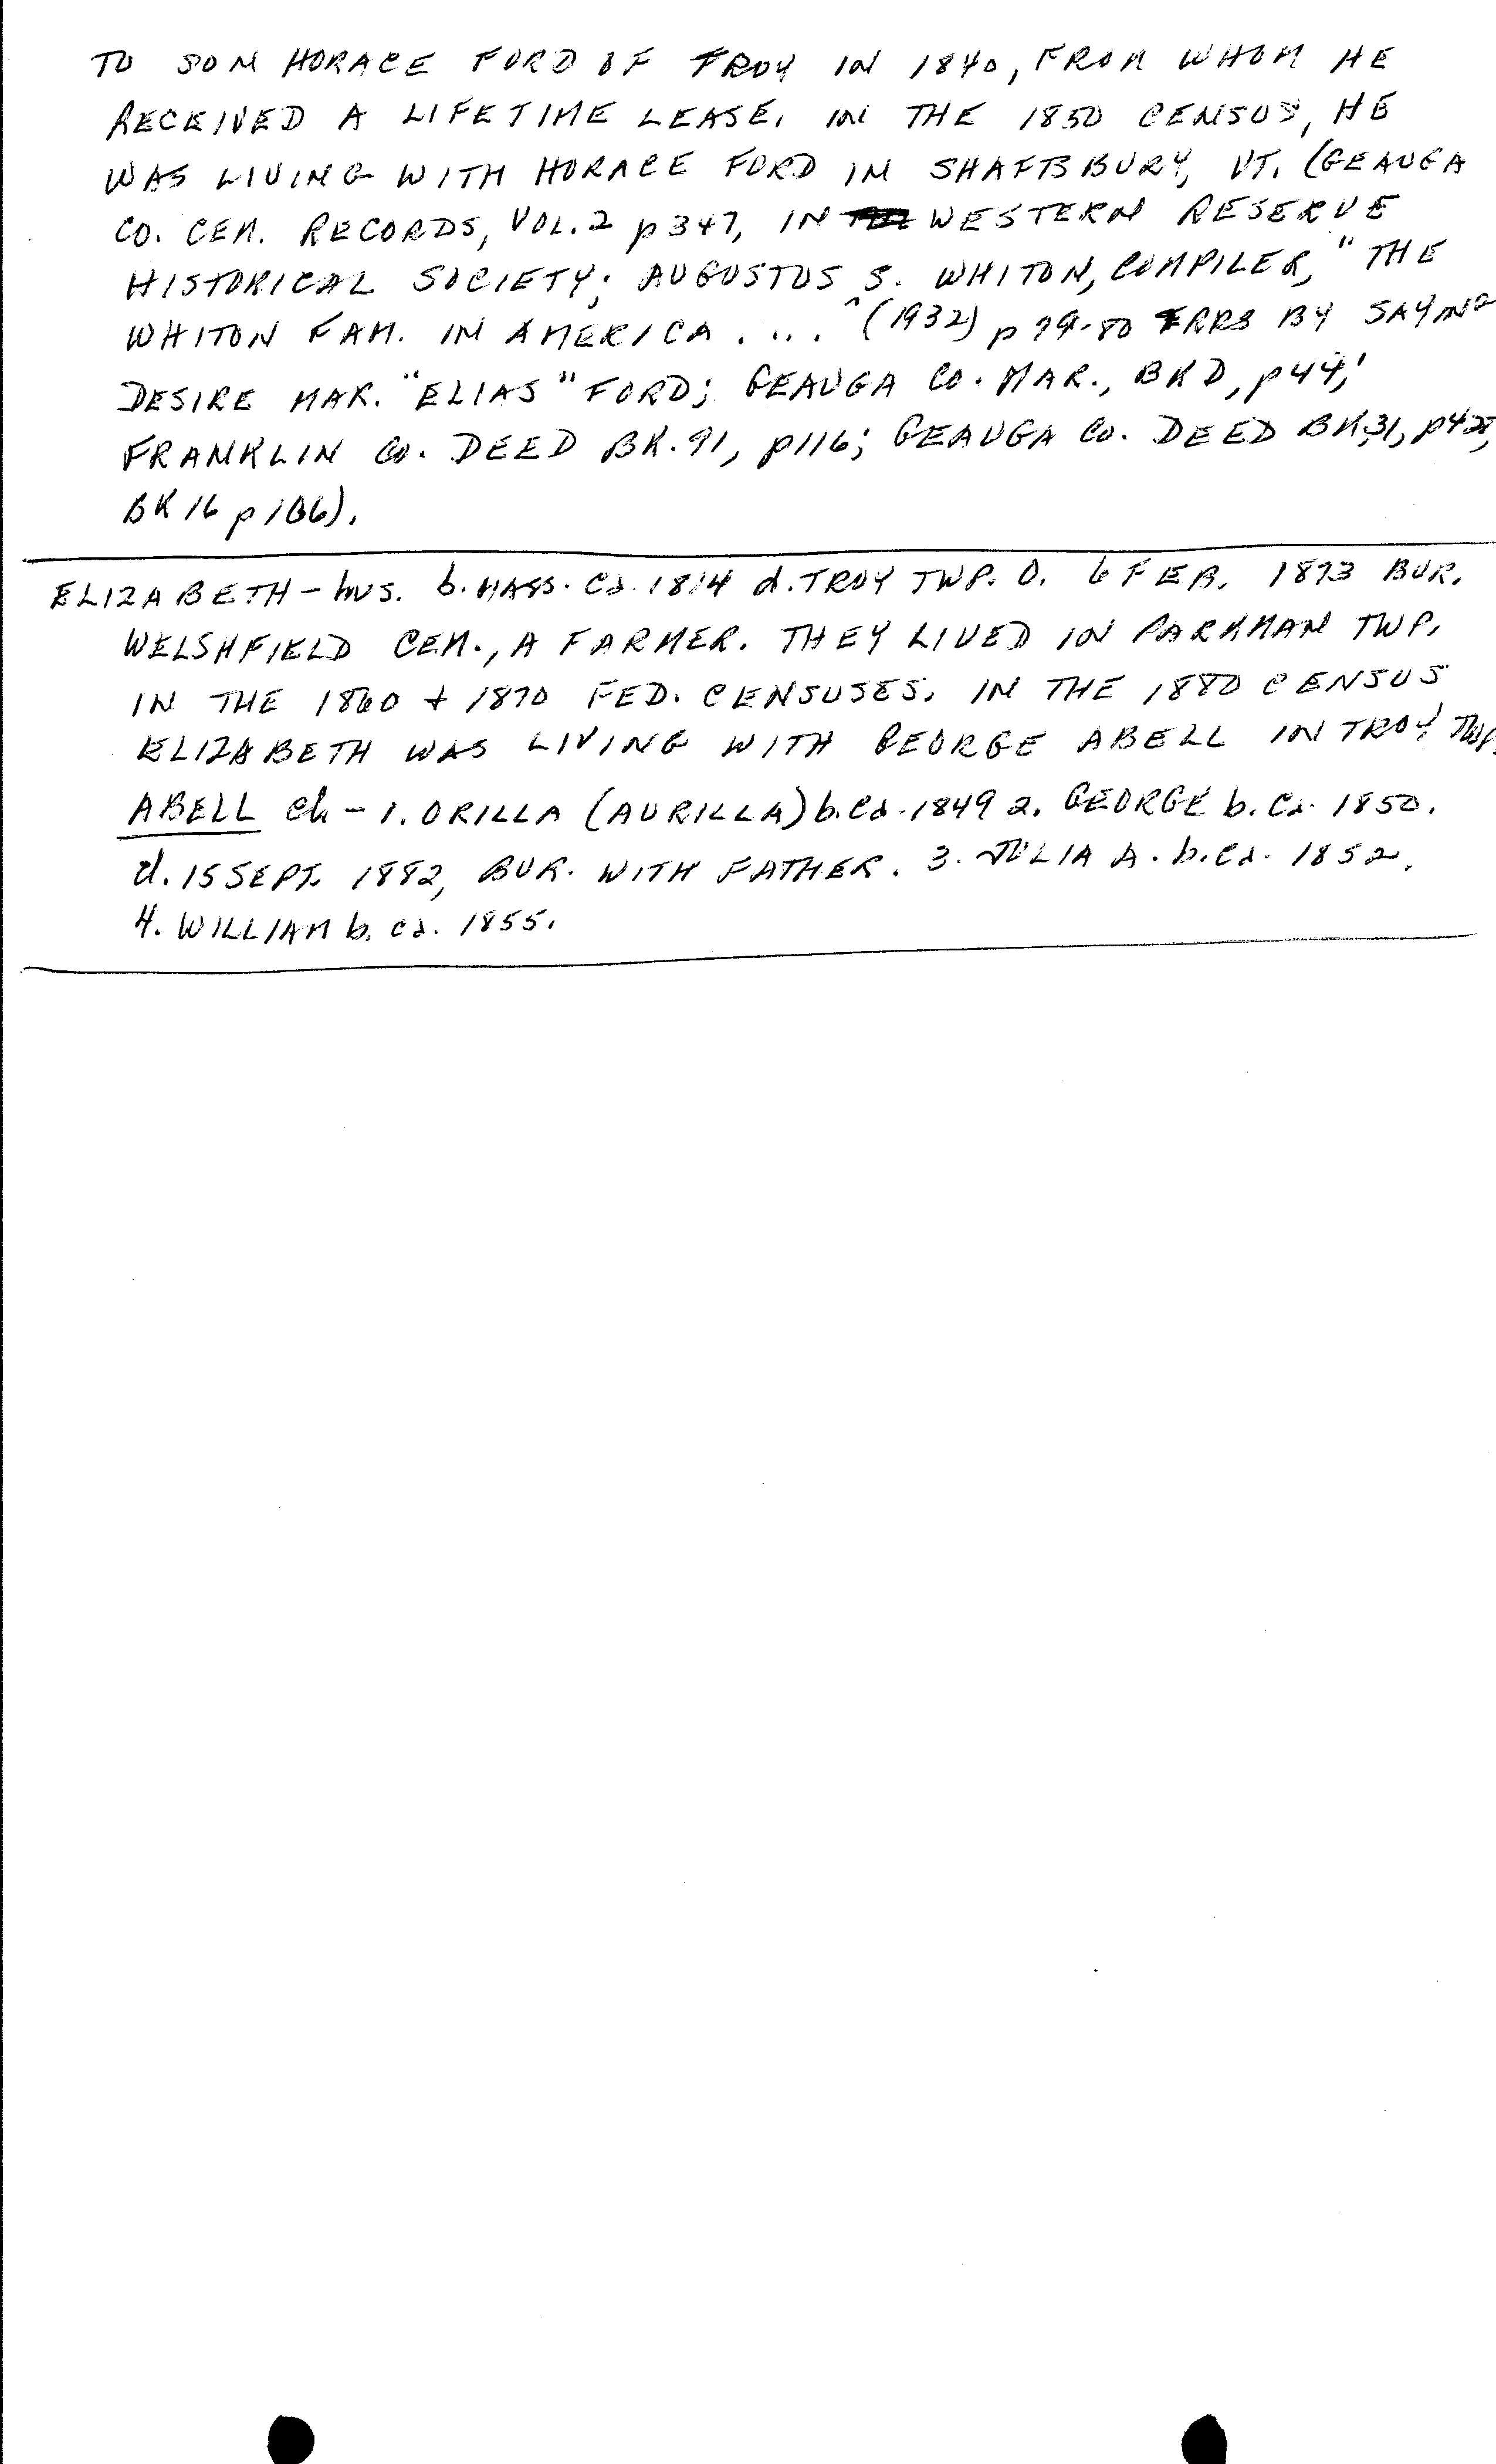 TO SON HORACE FORD OF TROY IN 1840, FROM WHOM HE
RECEIVED A LIFETIME LEASE. IN THE 1850 CENSUS, HE
WAS LIVING WITH HORACE FORD IN SHAFTSBURY, VT. (GEAUGA
CO. CEM. RECORDS, VOL. 2 p 347, IN WESTERN RESERVE
HISTORICAL SOCIETY; AUGUSTUS S. WHITON, COMPILER, "THE
WHITON FAM. IN AMERICA . . . " (1932) p 79-80 ERRS BY SAYING
DESIRE MAR. "ELIAS" FORD; GEAUGA CO. MAR., BK D, p 44;
FRANKLIN CO. DEED BK. 91, p 116; GEAUGA CO. DEED BK 31, p 428,
BK 16 p 106).
ELIZABETH - hus. b. MASS. ca. 1814 d. TROY TWP. O. 6 FEB. 1873 BUR.
WELSHFIELD CEM., A FARMER. THEY LIVED IN PARKMAN TWP.
IN THE 1860 + 1870 FED. CENSUSES. IN THE 1880 CENSUS
ELIZABETH WAS LIVING WITH GEORGE ABELL IN TROY TWP.
ABELL ch - 1. ORILLA (AURILLA) b. ca. 1849 2. GEORGE b. ca. 1850.
d. 15 SEPT. 1882, BUR. WITH FATHER. 3. JULIA A. b. ca. 1852.
4. WILLIAM b. ca. 1855.